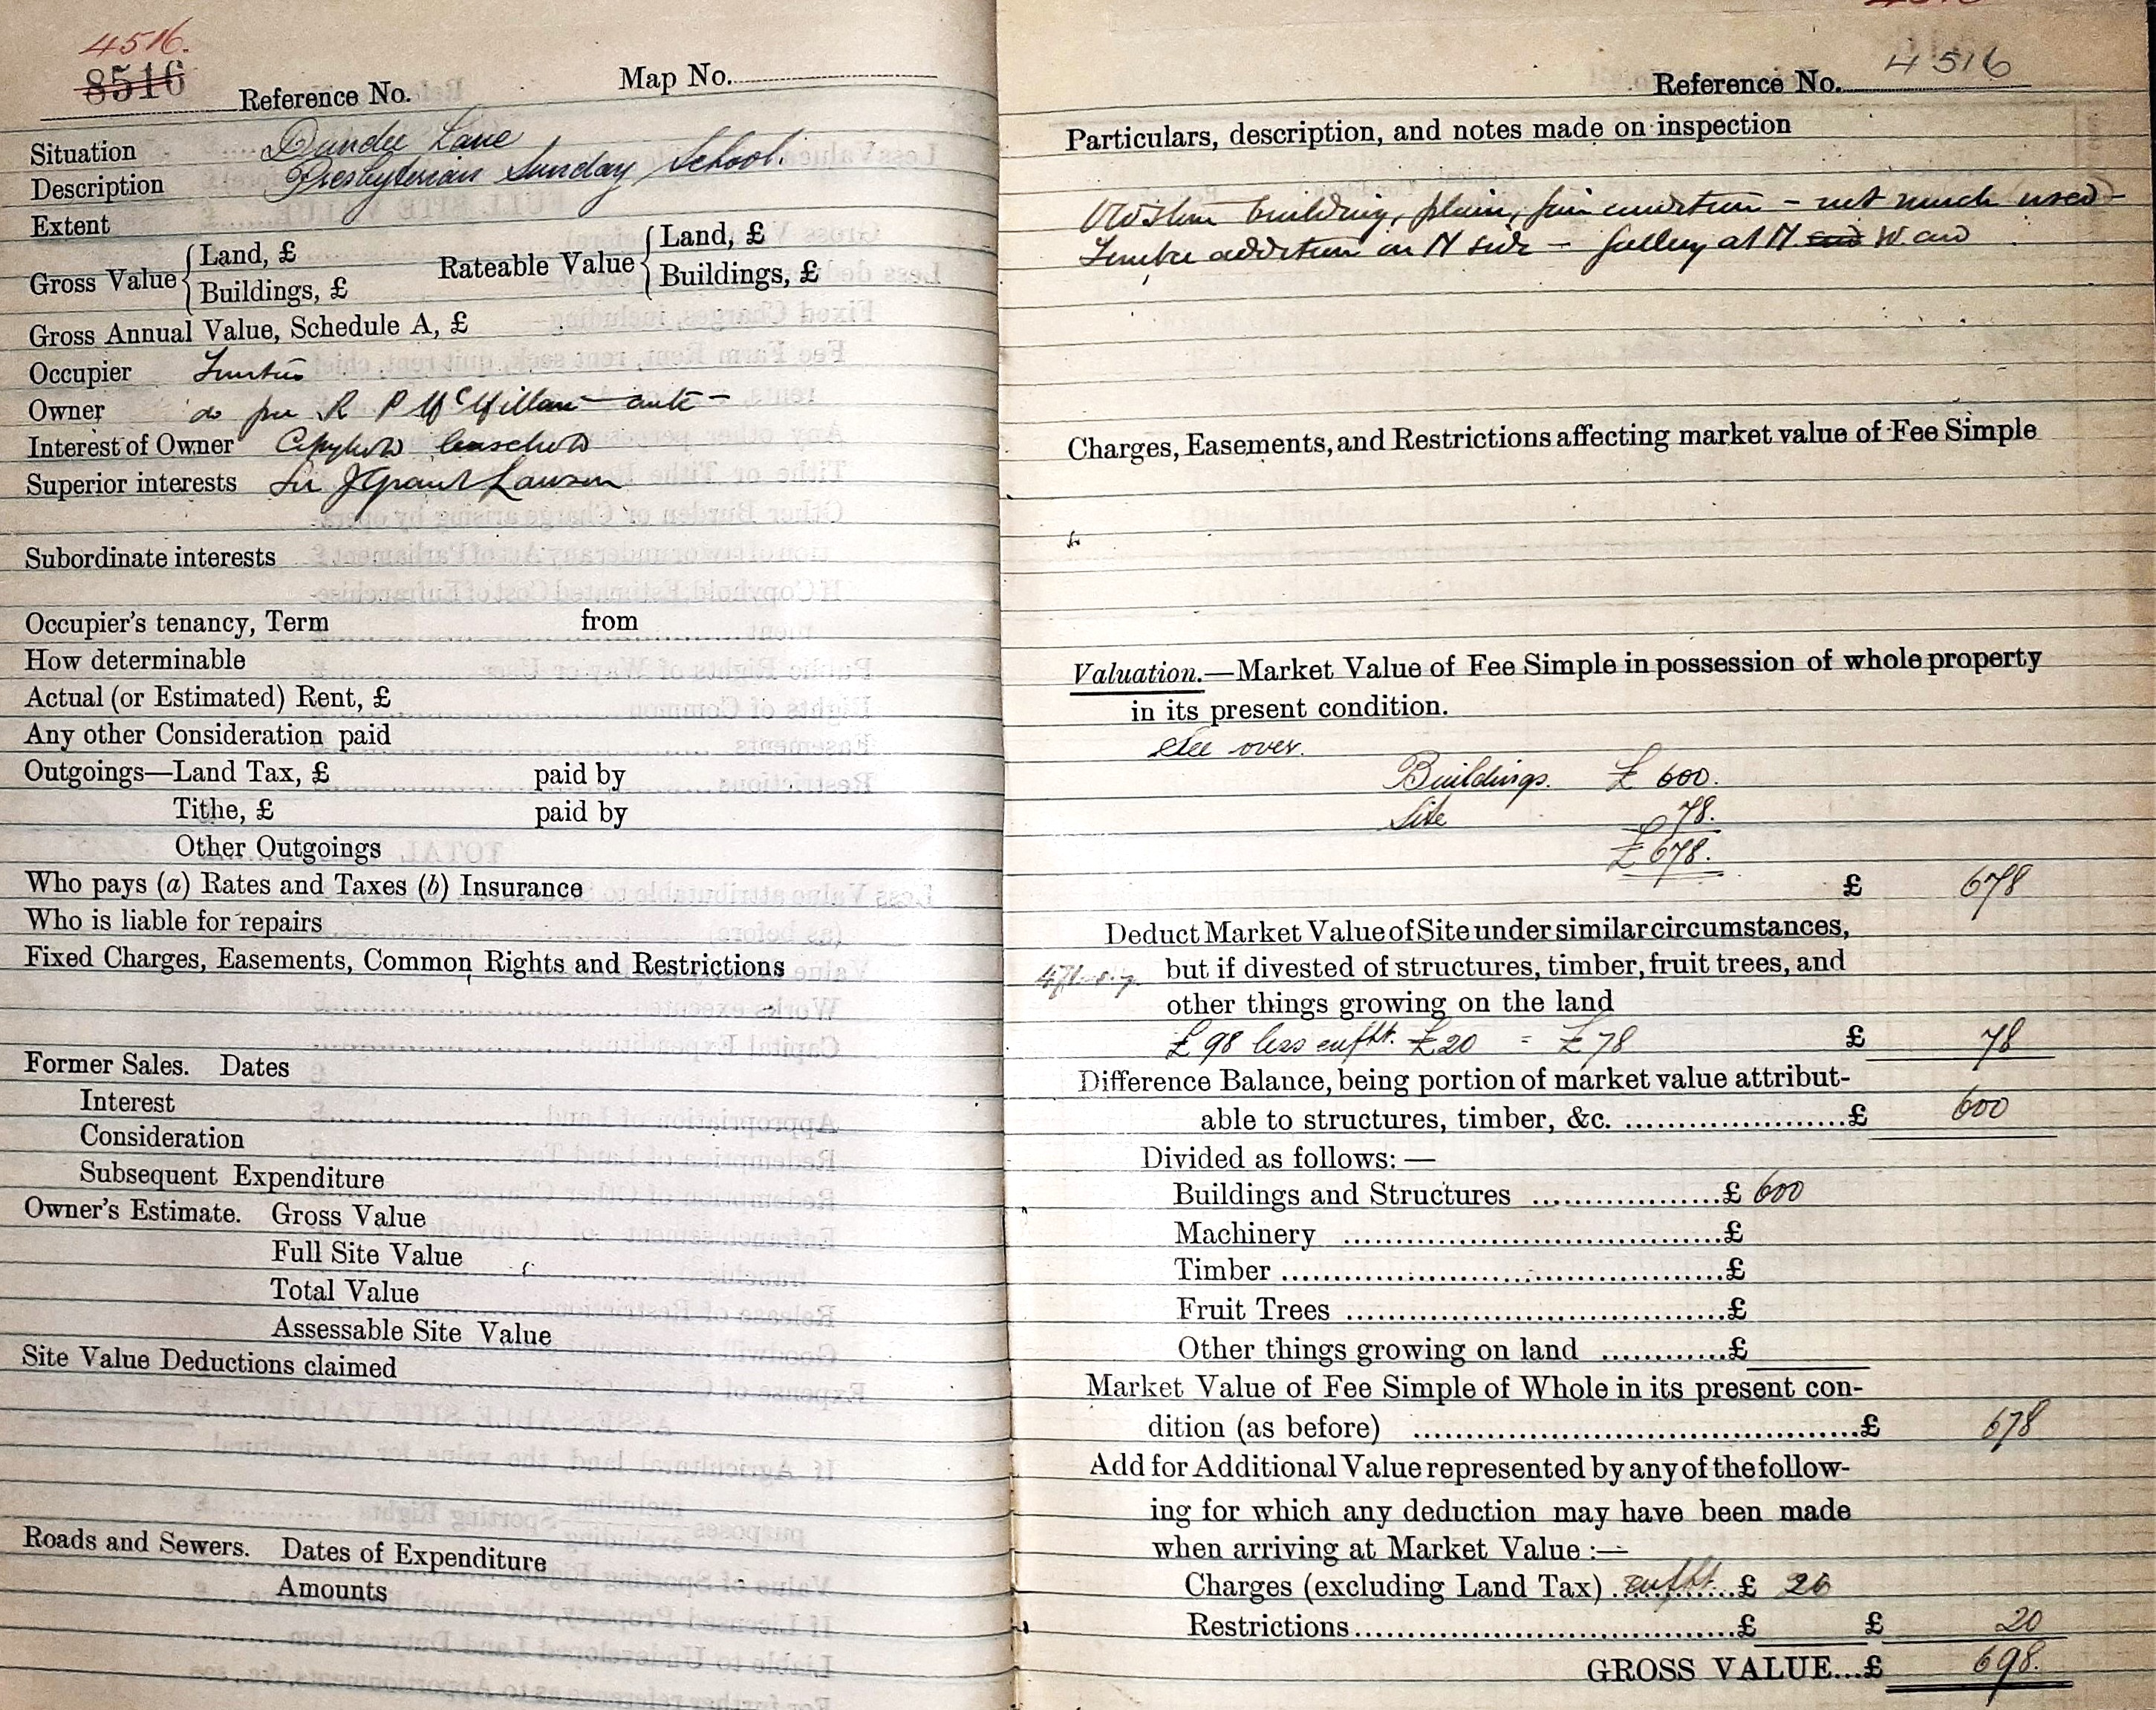 4516.
8516
Reference No.
Map No.
Situation Dundee Lane
Description Presbyterian Sunday School.
Extent
Gross Value Land, £ Rateable Value Land, £
Buildings, £ Buildings, £
Gross Annual Value, Schedule A, £
Occupier Trustees
Owner do per R P McMillan
Interest of Owner Copyhold leasehold
Superior interests Sir J Grant Lawson
Subordinate interests
Occupier's tenancy, Term from
How determinable
Actual (or Estimated) Rent, £
Any other Consideration paid
Outgoings—Land Tax, £ paid by
Tithe, £ paid by
Other Outgoings
Who pays (a) Rates and Taxes (b) Insurance
Who is liable for repairs
Fixed Charges, Easements, Common Rights and Restrictions
Former Sales. Dates
Interest
Consideration
Subsequent Expenditure
Owner's Estimate. Gross Value
Full Site Value
Total Value
Assessable Site Value
Site Value Deductions claimed
Roads and Sewers. Dates of Expenditure
Amounts
Reference No. 4516
Particulars, description, and notes made on inspection
Old stone building, plain, fair condition – not much used –
Timber addition on N side – gallery at N end W end
Charges, Easements, and Restrictions affecting market value of Fee Simple
Valuation.—Market Value of Fee Simple in possession of whole property
in its present condition.
See over.
Buildings. £ 600.
Site 78.
£ 678.
£ 678
Deduct Market Value of Site under similar circumstances,
but if divested of structures, timber, fruit trees, and
other things growing on the land
£98 less enfht. £20 = £78 £ 78
Difference Balance, being portion of market value attribut-
able to structures, timber, &c. £ 600
Divided as follows:—
Buildings and Structures £ 600
Machinery £
Timber £
Fruit Trees £
Other things growing on land £
Market Value of Fee Simple of Whole in its present con-
dition (as before) £ 678
Add for Additional Value represented by any of the follow-
ing for which any deduction may have been made
when arriving at Market Value :—
Charges (excluding Land Tax) enfht. £ 20
Restrictions £ £ 20
GROSS VALUE...£ 698.